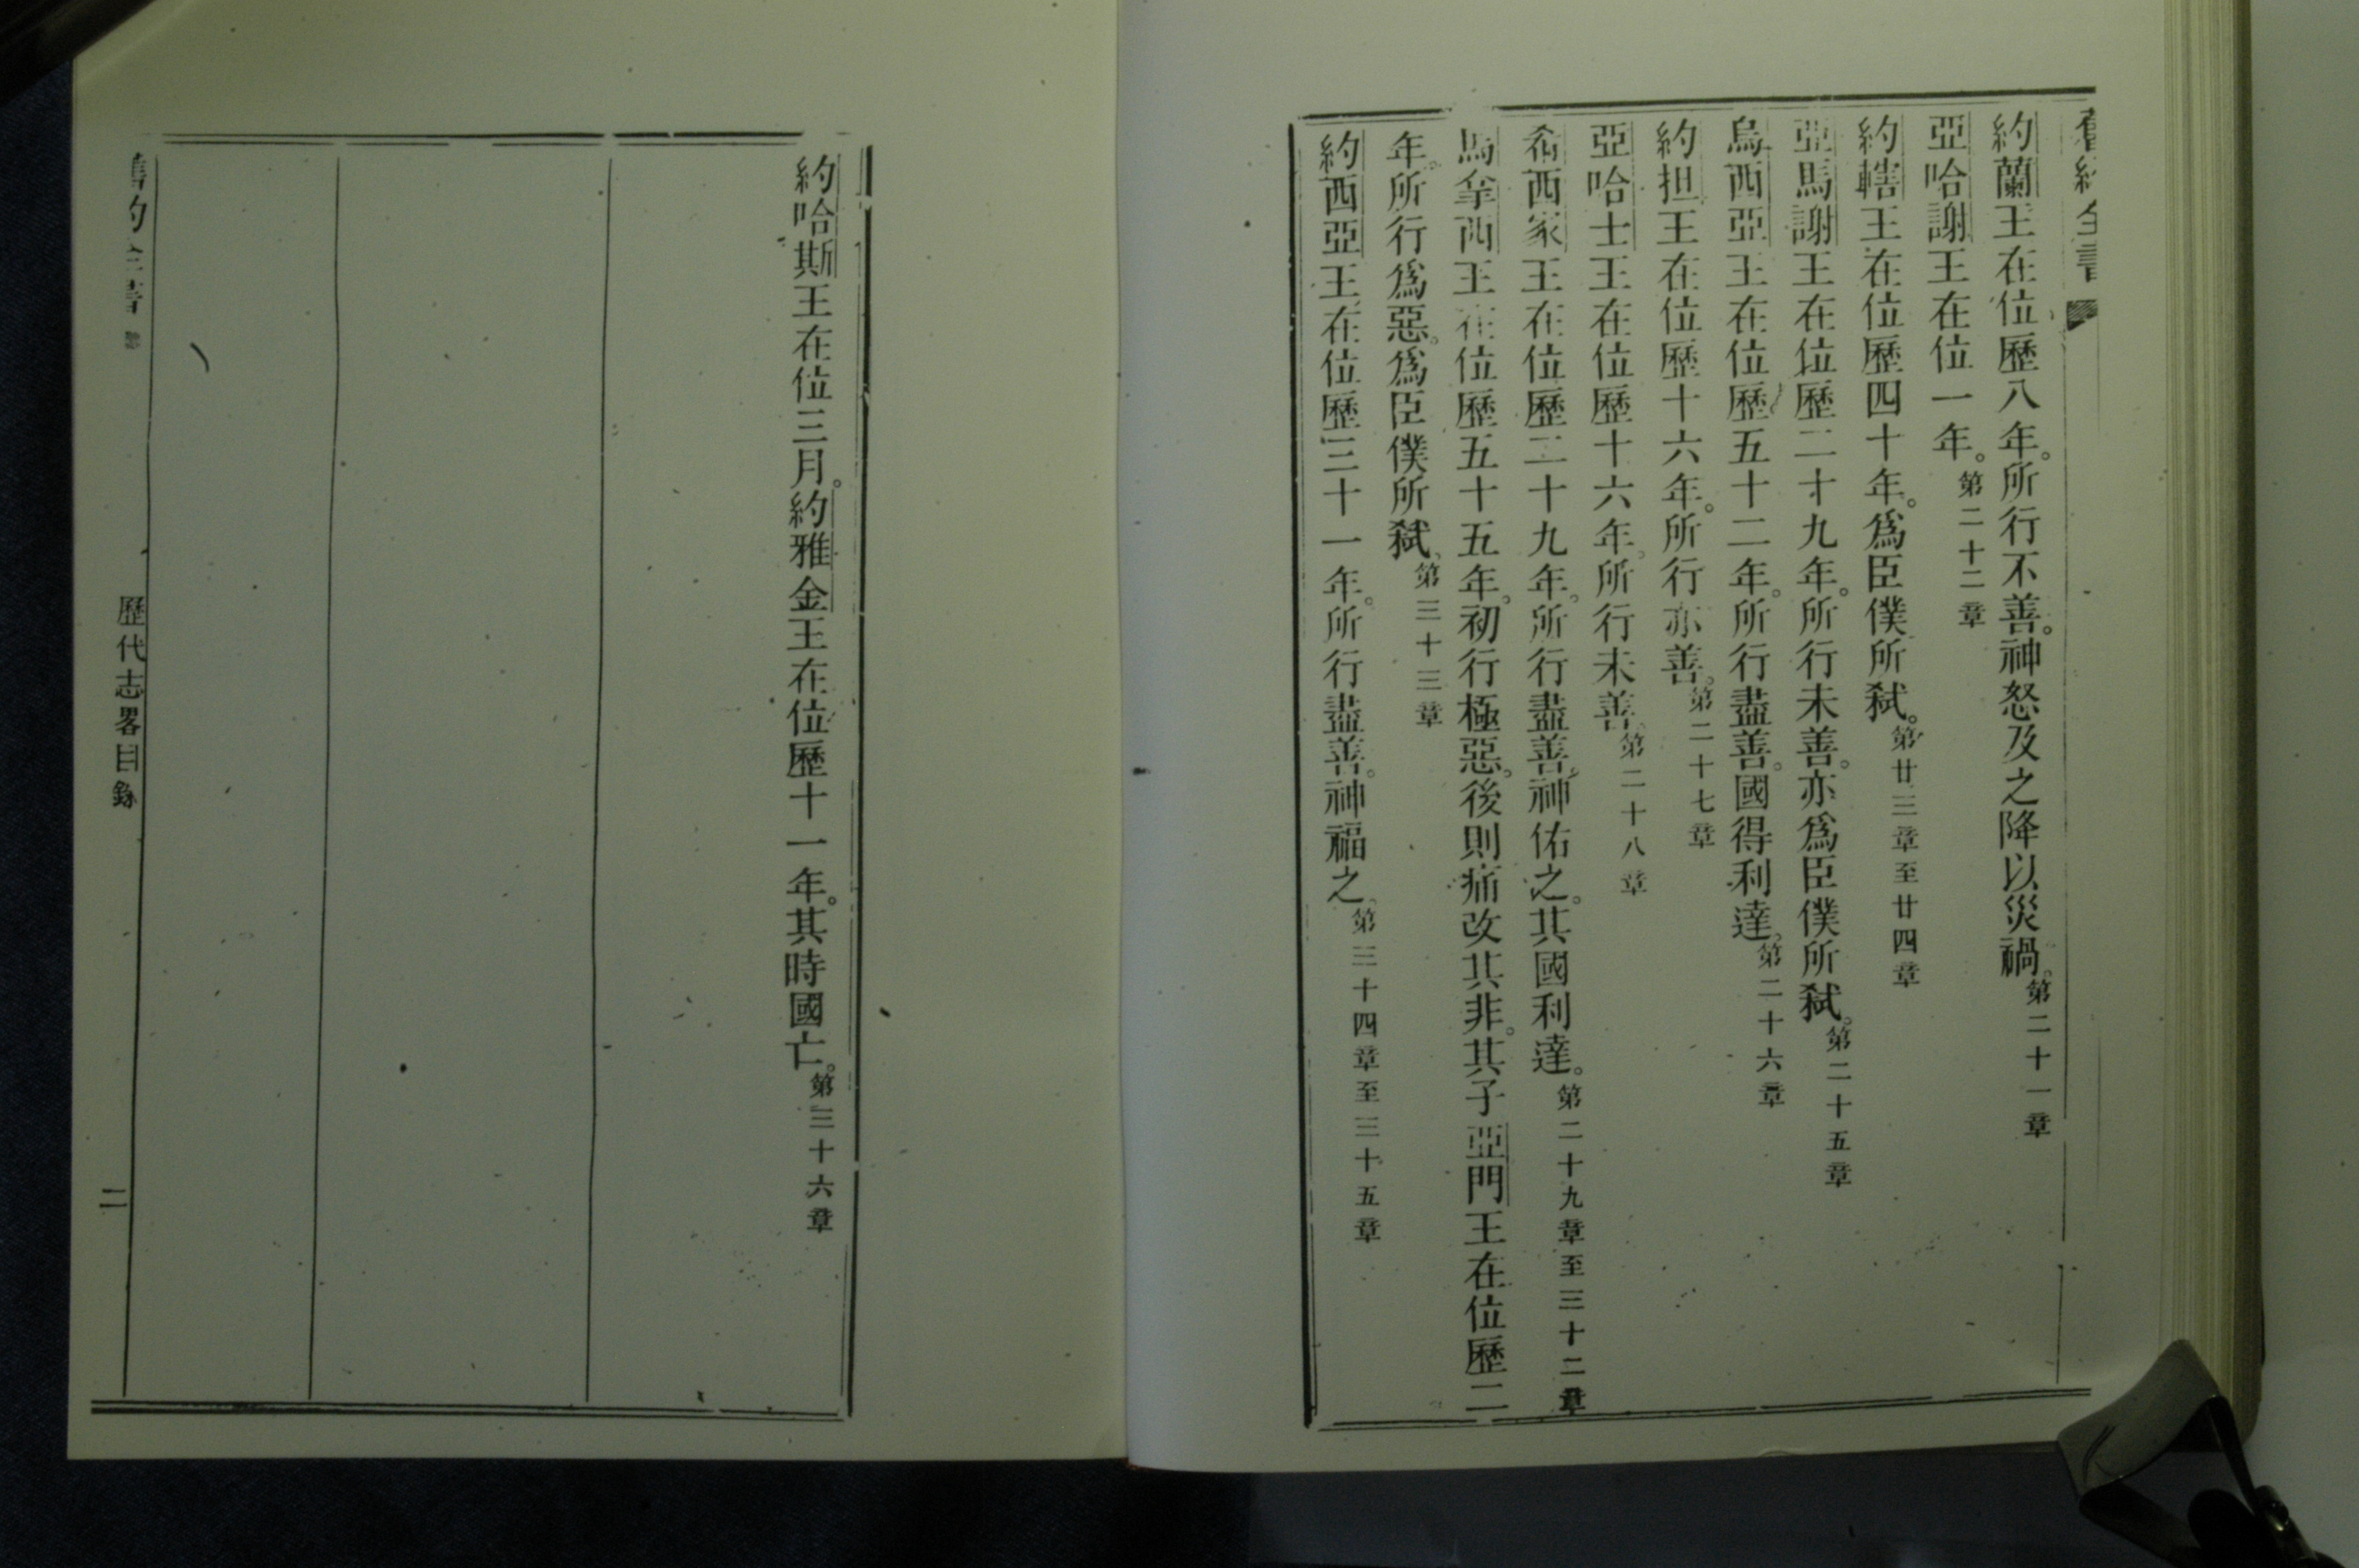 舊約全書
約蘭王在位歷八年。所行不善。神怒及之降以災禍。第二十一章
亞哈謝王在位一年。第二十二章
約轄王在位歷四十年。爲臣僕所弒。第廿三章至廿四章
亞馬謝王在位歷二十九年。所行未善。亦爲臣僕所弒。第二十五章
烏西亞王在位歷五十二年。所行盡善。國得利達。第二十六章
約担王在位歷十六年。所行亦善。第二十七章
亞哈士王在位歷十六年。所行未善。第二十八章
希西家王在位歷二十九年。所行盡善。神佑之。其國利達。第二十九章至三十二章
馬拿西王在位歷五十五年。初行極惡。後則痛改其非。其子亞門王在位歷二
年。所行爲惡。爲臣僕所弒。第三十三章
約西亞王在位歷三十一年。所行盡善。神福之。第三十四章至三十五章
約哈斯王在位三月。約雅金王在位歷十一年。其時國亡。第三十六章
舊約全書
歷代志畧目錄
二